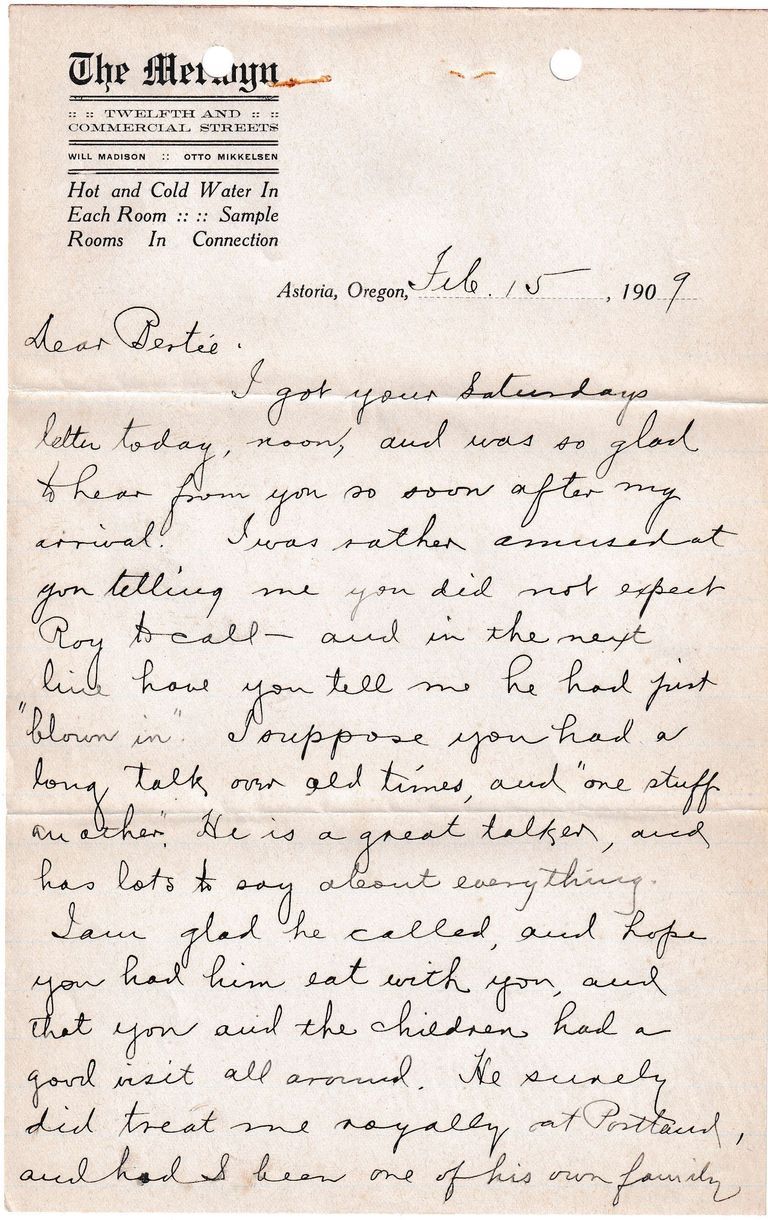 The Merwyn
:: :: TWELFTH AND :: ::
COMMERCIAL STREETS
WILL MADISON :: OTTO MIKKELSEN
Hot and Cold Water In
Each Room :: :: Sample
Rooms In Connection
Astoria, Oregon, Feb. 15, 1909
Dear Bertie.
I got your Saturdays
letter today, noon, and was so glad
to hear from you so soon after my
arrival. I was rather amused at
you telling me you did not expect
Roy to call — and in the next
line have you tell me he had just
"blown in". I suppose you had a
long talk over old times, and "one stuff
an other". He is a great talker, and
has lots to say about everything.
I am glad he called, and hope
you had him eat with you, and
that you and the children had a
good visit all around. He surely
did treat me royally at Portland,
and had I been one of his own family